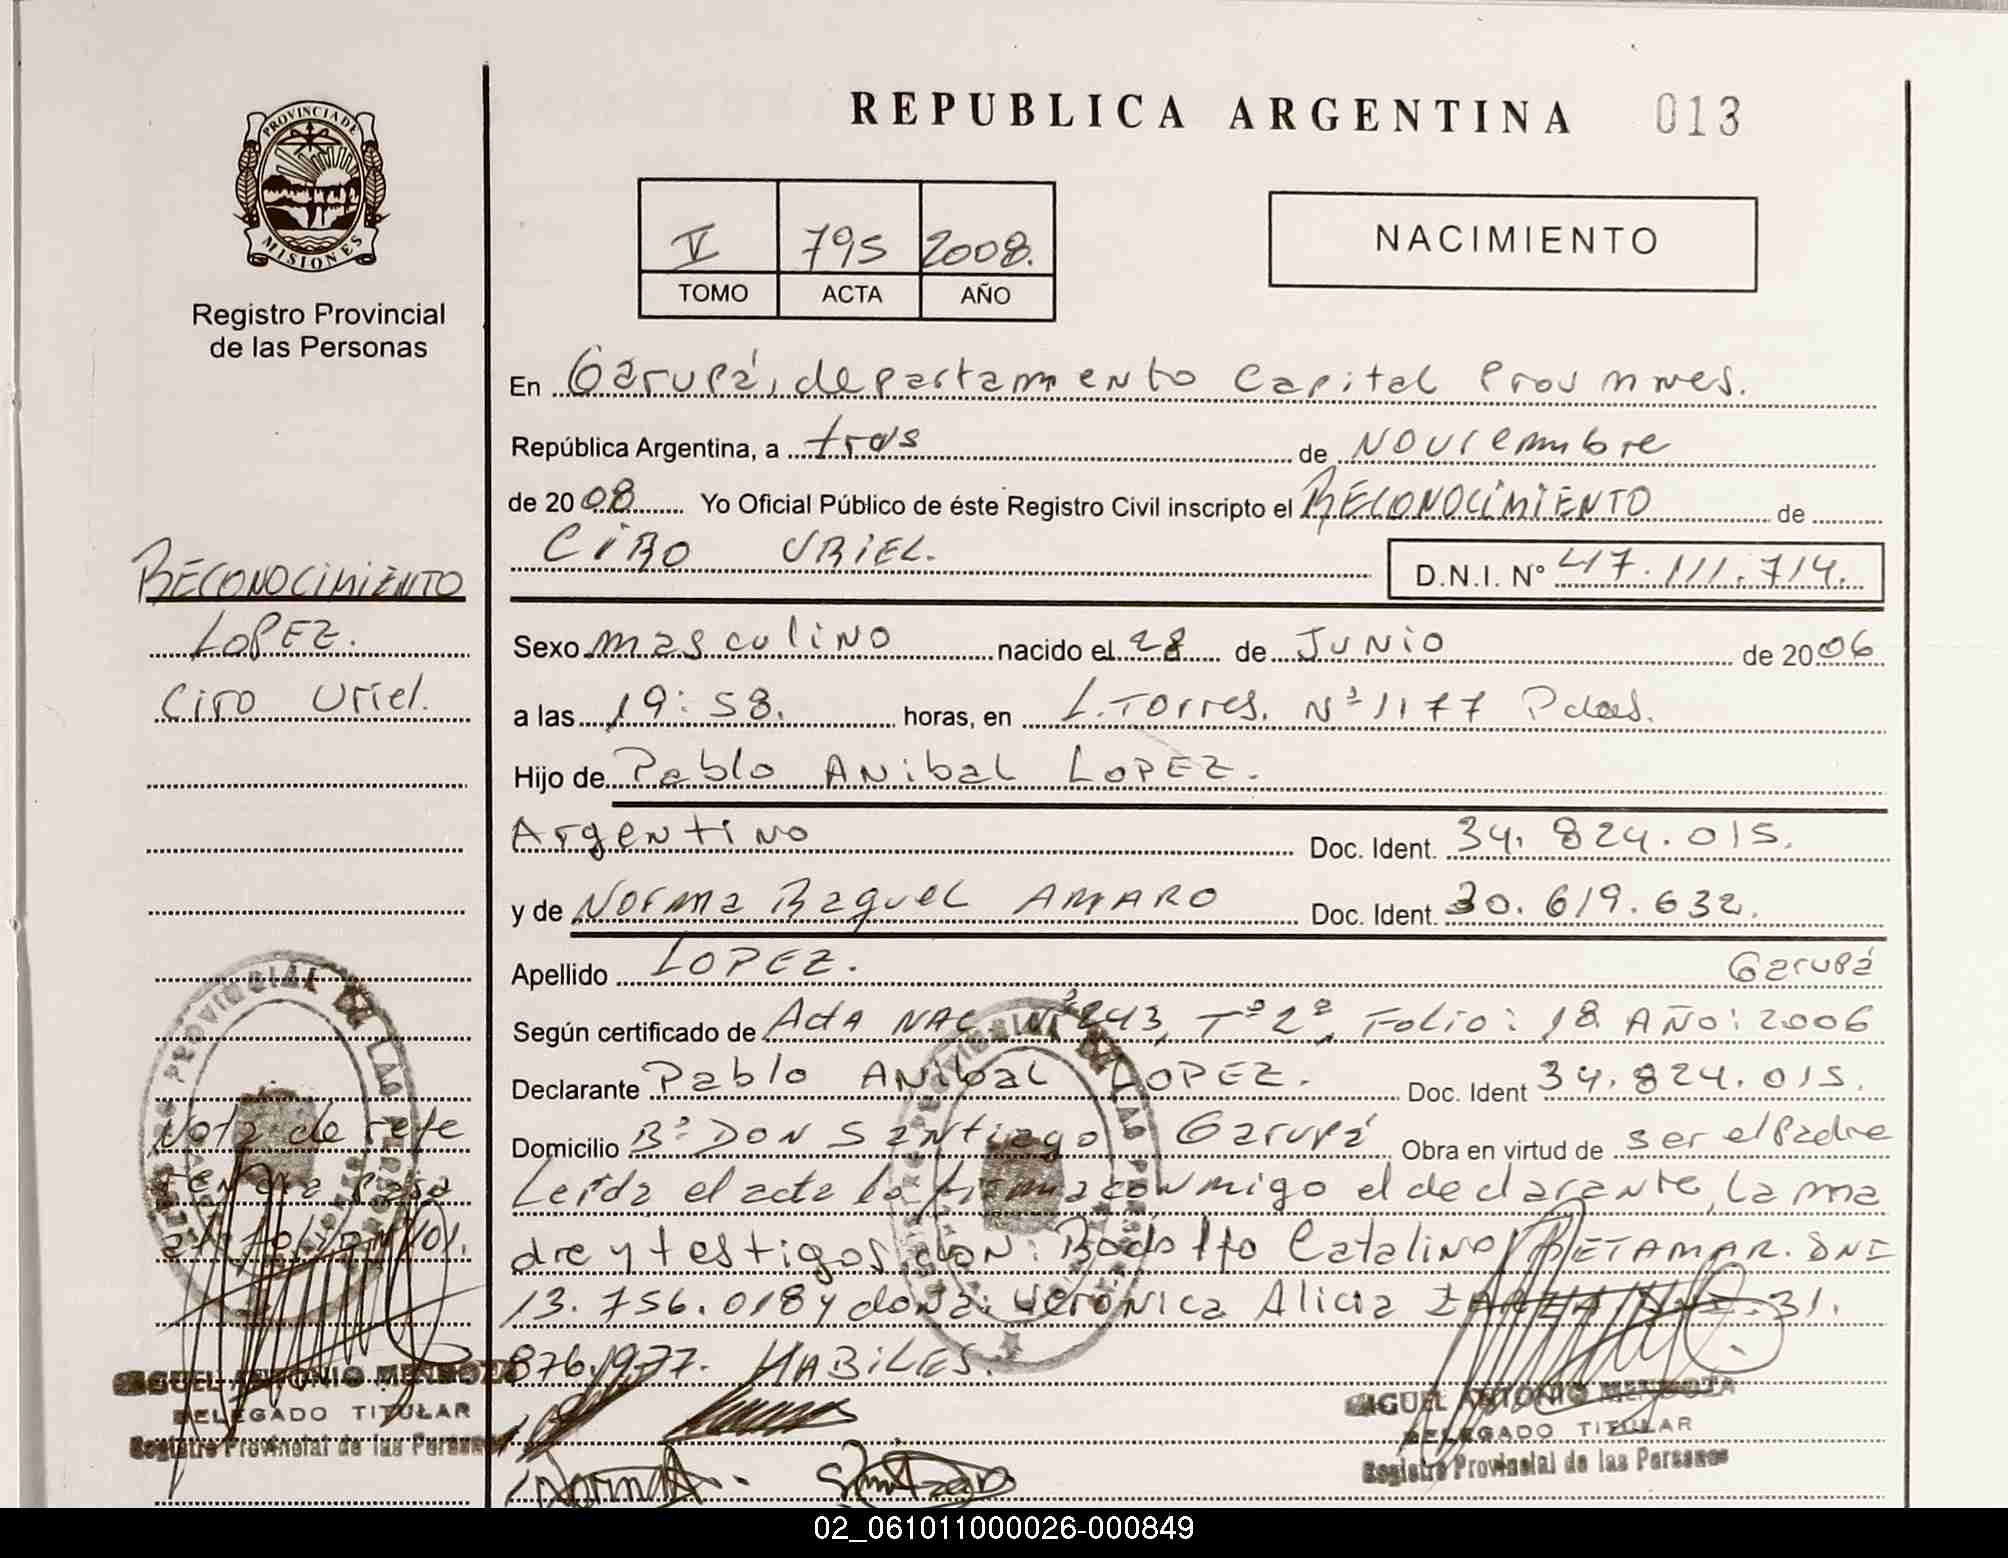 REPUBLICA ARGENTINA 013
PROVINCIA DE MISIONES
Registro Provincial
de las Personas
V 795 2008.
TOMO ACTA AÑO
NACIMIENTO
En Garupá, departamento Capital
República Argentina, a tres de Noviembre
de 2008 Yo Oficial Público de éste Registro Civil inscripto el RECONOCIMIENTO de
CIRO URIEL.
D.N.I. Nº 47.111.714.
Sexo masculino nacido el 28 de Junio de 2006
a las 19:58. horas, en L. Torres. Nº 1177 Pdas.
Hijo de Pablo Anibal LOPEZ.
Argentino Doc. Ident. 34.824.015.
y de Norma Raquel AMARO Doc. Ident. 30.619.632.
Apellido LOPEZ. Garupá
Según certificado de Acta NAC Nº 243, Tº 2º, Folio: 18 AÑO: 2006
Declarante Pablo Anibal LOPEZ. Doc. Ident 34.824.015.
Domicilio Bº DON Santiago Garupá Obra en virtud de ser el Padre
Leída el acta la firma conmigo el declarante, la ma
dre y testigos don: Rodolfo Catalino RETAMAR. DNI
13.756.018 y doña: Verónica Alicia 31.
876.977. HABILES.
RECONOCIMIENTO
LOPEZ.
Ciro Uriel.
Nota de refe
rencia pasa
al folio
MIGUEL ANTONIO MENDOZA
DELEGADO TITULAR
Registro Provincial de las Personas
MIGUEL ANTONIO MENDOZA
DELEGADO TITULAR
Registro Provincial de las Personas
02_061011000026-000849